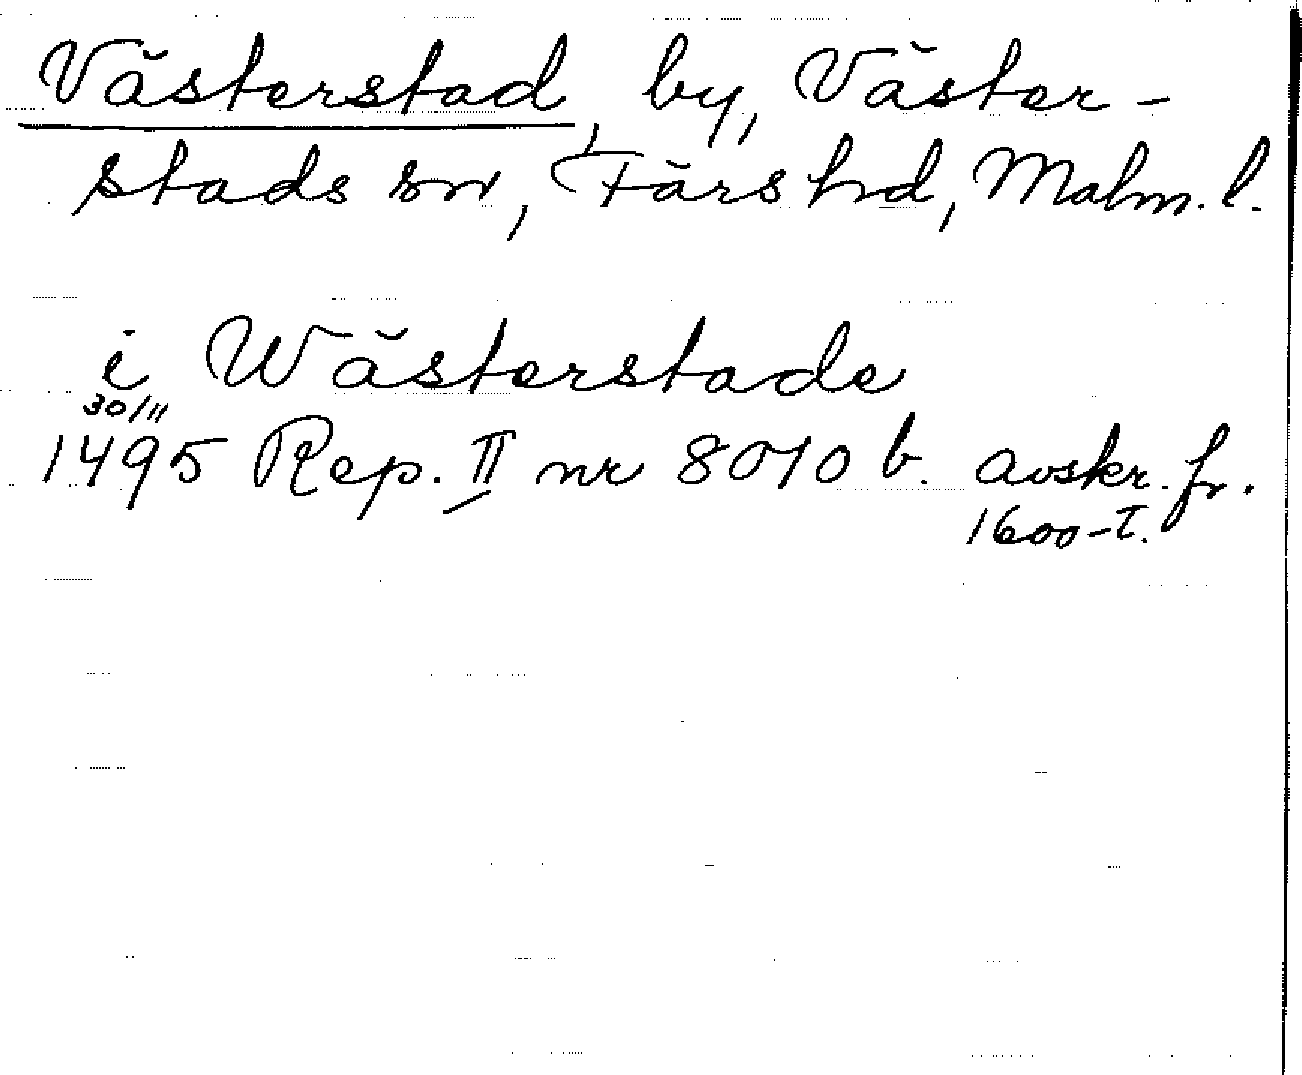 Västerstad, by, Väster-
stads sn, Färs hd, Malm. l.
i Wästerstade
30/11
1495 Rep. II nr 8010 b. avskr. fr.
1600-t.